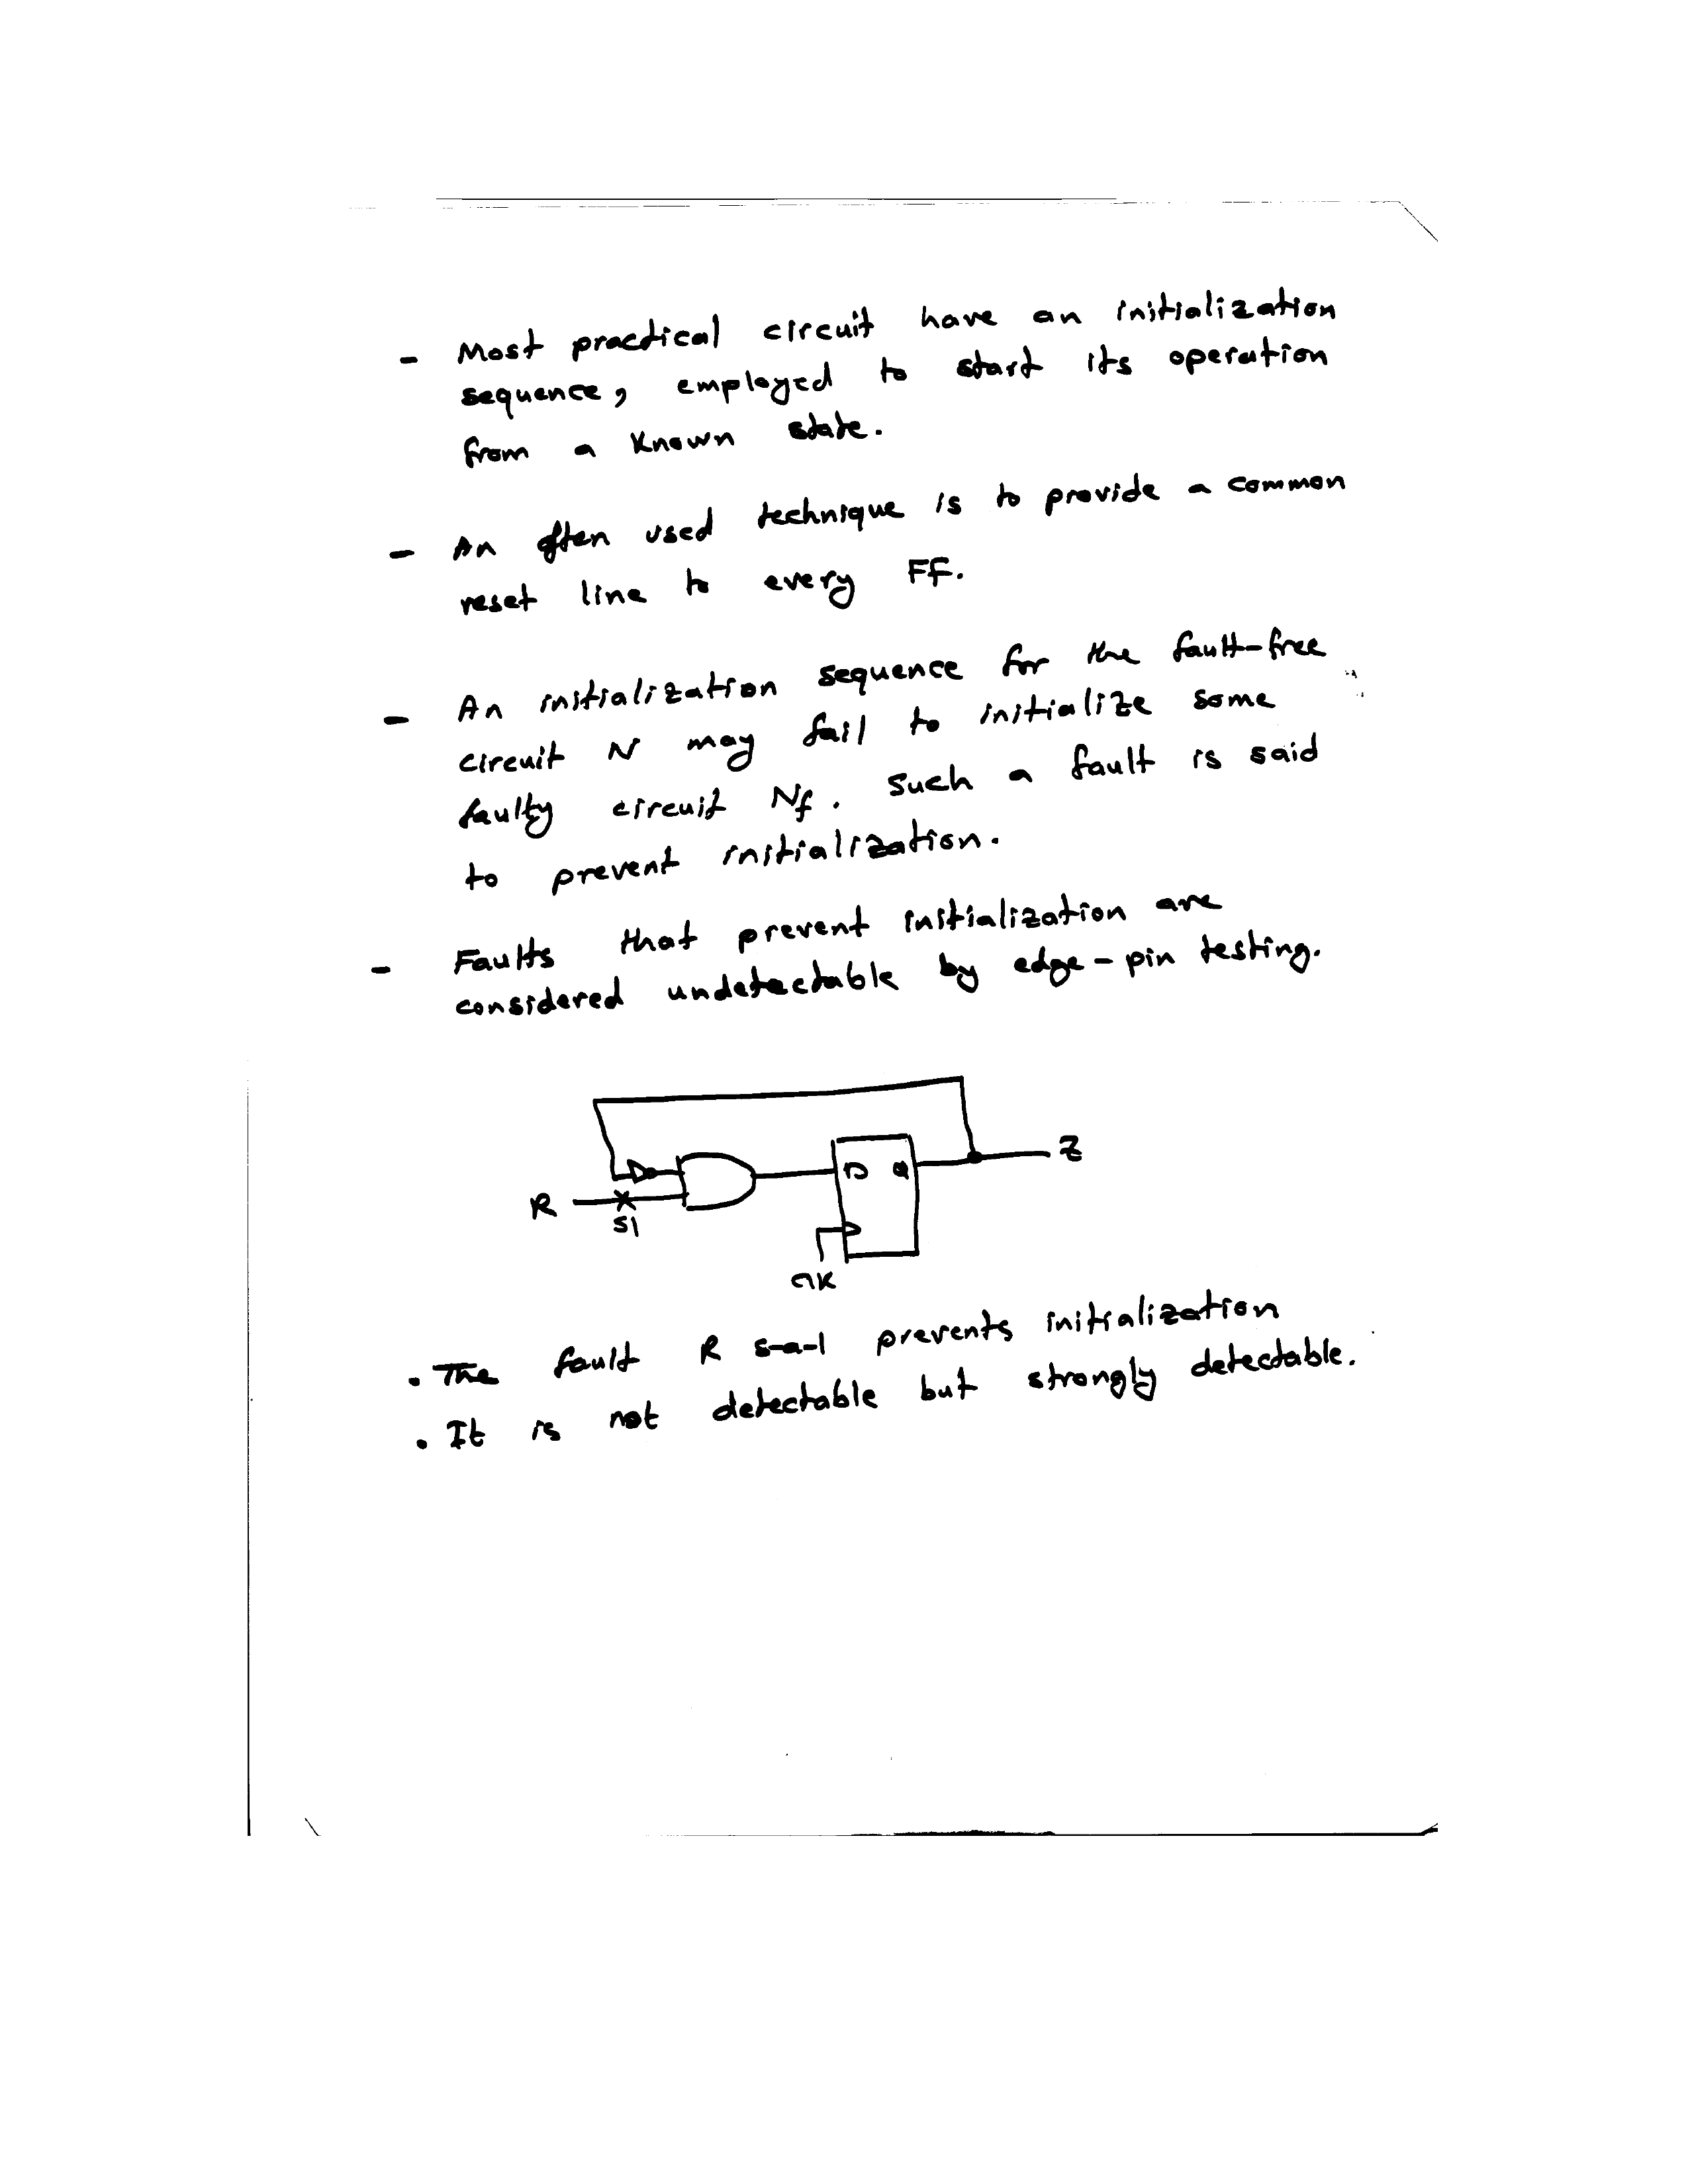 - Most practical circuit have an initialization
sequence, employed to start its operation
from a known state.
- An often used technique is to provide a common
reset line to every FF.
- An initialization sequence for the fault-free
circuit N may fail to initialize some
faulty circuit Nf. Such a fault is said
to prevent initialization.
- Faults that prevent initialization are
considered undetectable by edge-pin testing.
Z
D Q
R
S1
CLK
• The fault R s-a-1 prevents initialization
• It is not detectable but strongly detectable.